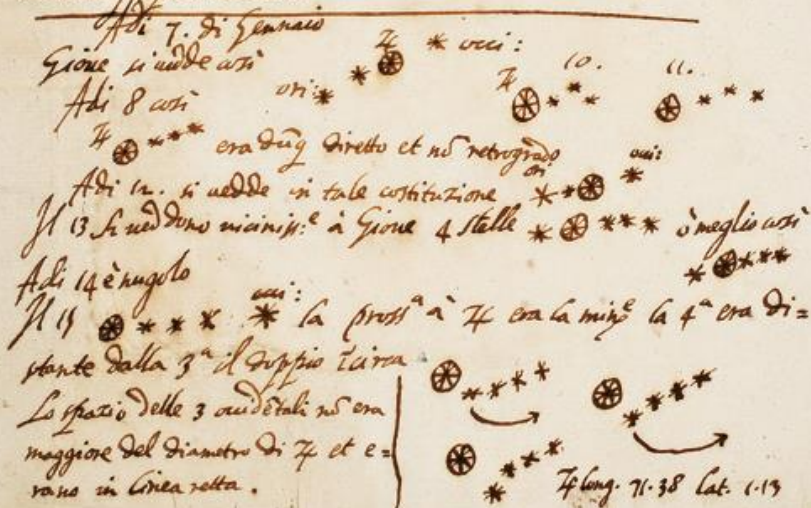 Adi 7. di Gennaio
Gione si uedde così
ori: ♃ occi:
Adi 8 così
♃ 10. 11.
♃ era dūq diretto et nō retrogrado
Adi 12. si uedde in tale costituzione ori occi:
Il 13 si ueddono uiciniss:e à Gioue 4 stelle ò meglio così
Adi 14 è nugolo
Il 15 occi: la prossa à ♃ era la mine la 4a era di=
stante dalla 3a il doppio īcirca
Lo spazio delle 3 occidētali nō era
maggiore del diametro di ♃ et e=
rano in linea retta.
♃ long. 71.38 lat. 1.13